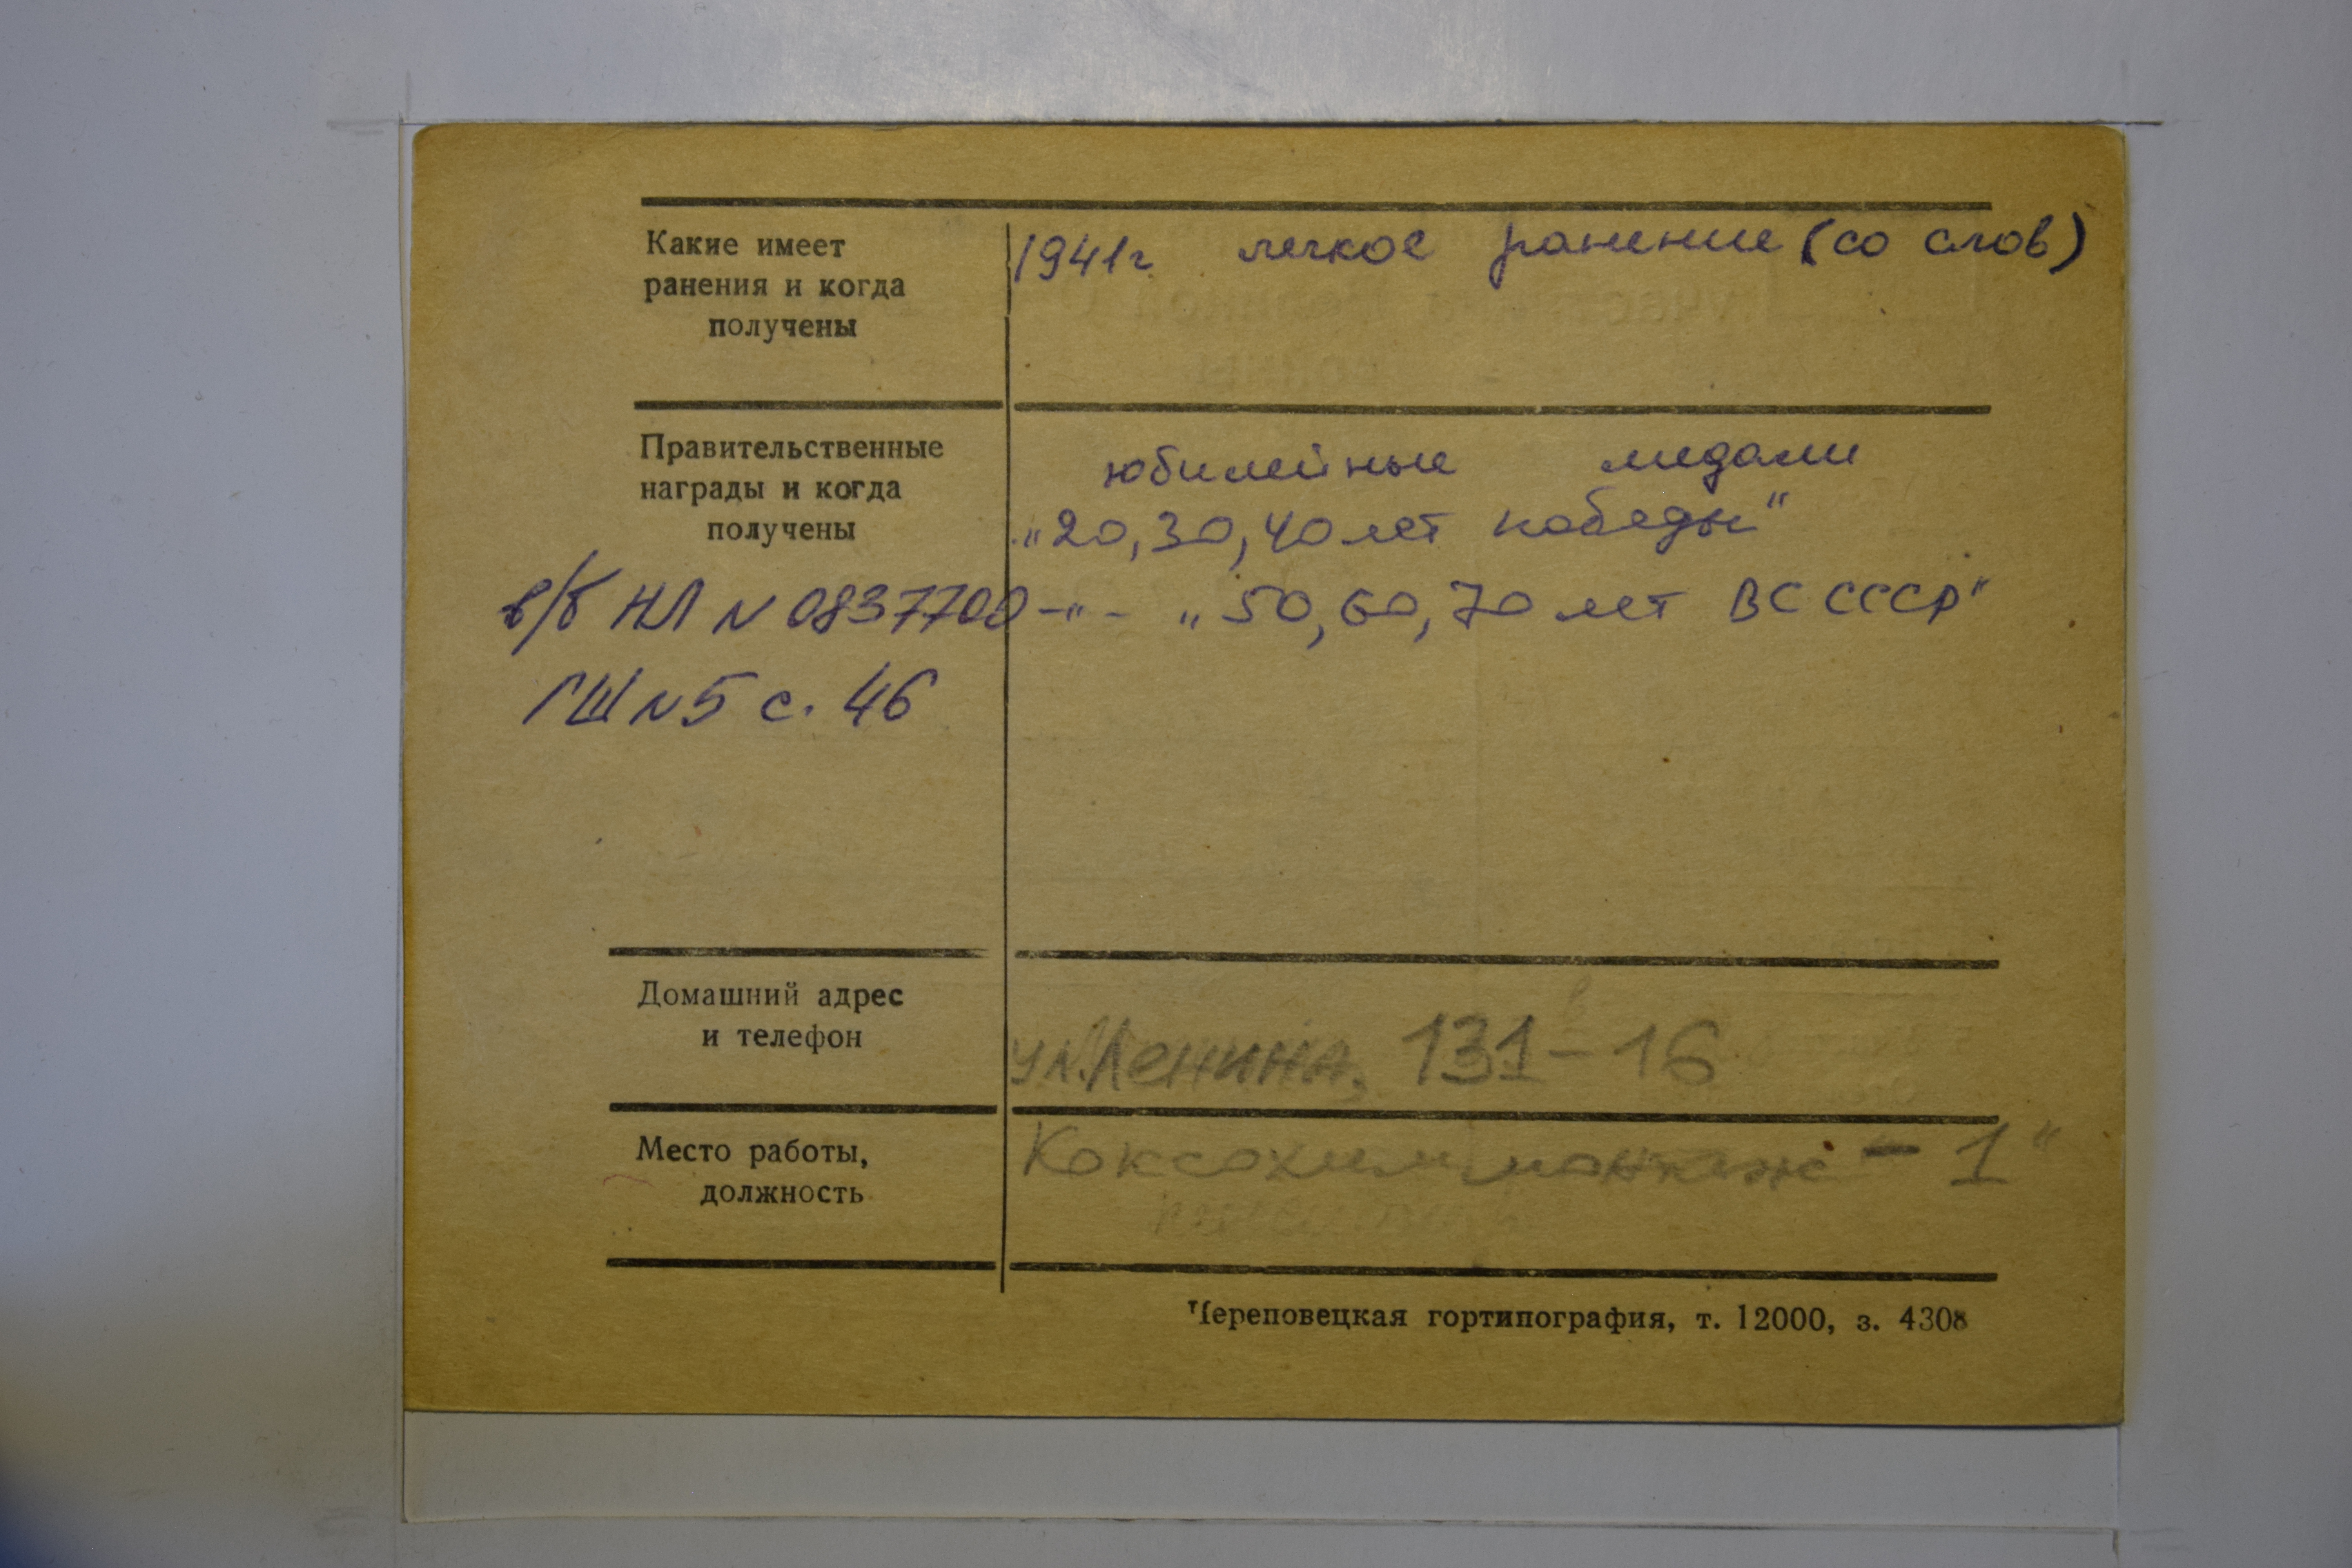 Какие имеет
ранения и когда
получены
1941г легкое ранение (со слов)
Правительственные
награды и когда
получены
юбилейные медали
„20, 30, 40 лет победы"
-"- „50, 60, 70 лет ВС СССР"
в/б НЛ N 0837700
ГШ N5 с. 46
Домашний адрес
и телефон
ул. Ленина, 131-16
Место работы,
должность
Коксохиммонтаж - 1"
Череповецкая гортипография, т. 12000, з. 4308